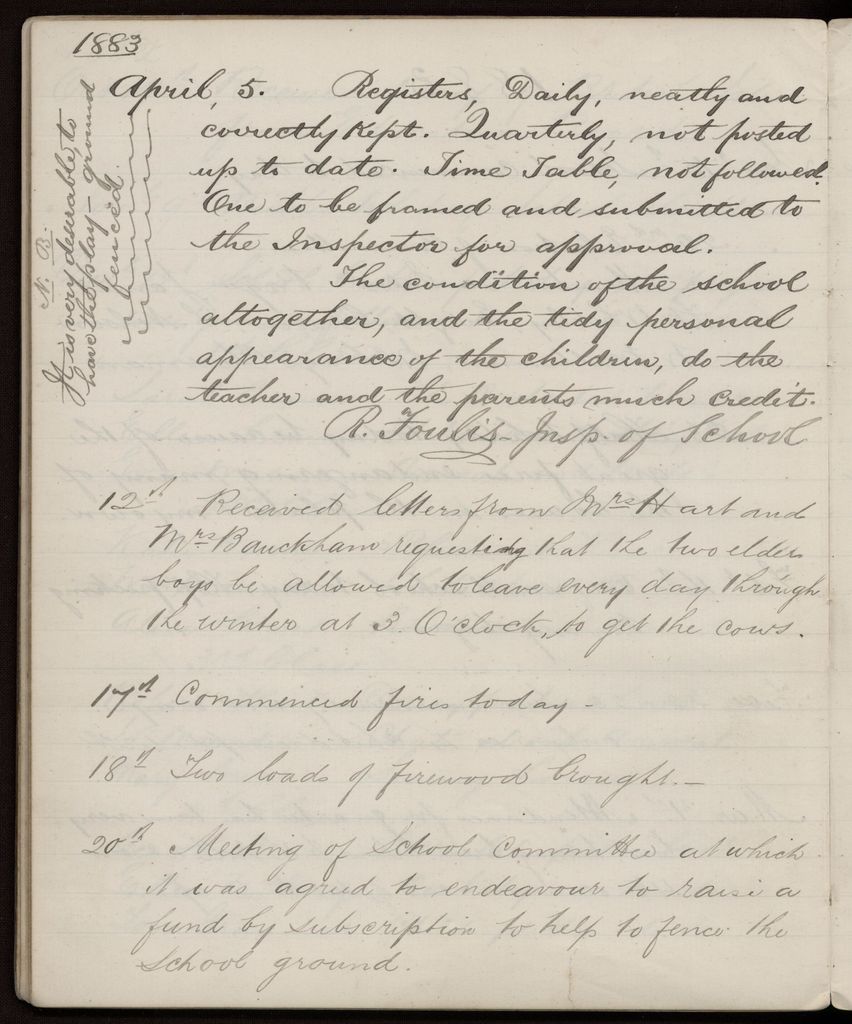 1883
April, 5. Registers, Daily, neatly and
correctly kept. Quarterly, not posted
up to date. Time Table, not followed.
One to be framed and submitted to
the Inspector for approval.
The condition of the school
altogether, and the tidy personal
appearance of the children, do the
teacher and the parents much credit.
R. Foulis - Insp. of School
N. B.
It is very desirable, to
have the play-ground
fenced.
12th Received letters from Mrs Hart and
Mrs Bauckham requesting that the two elder
boys be allowed to leave every day through
the winter at 3. O'clock, to get the cows.
17th Commenced fires today -
18th Two loads of firewood brought. -
20th Meeting of School Committee at which
it was agreed to endeavour to raise a
fund by subscription to help to fence the
School ground.